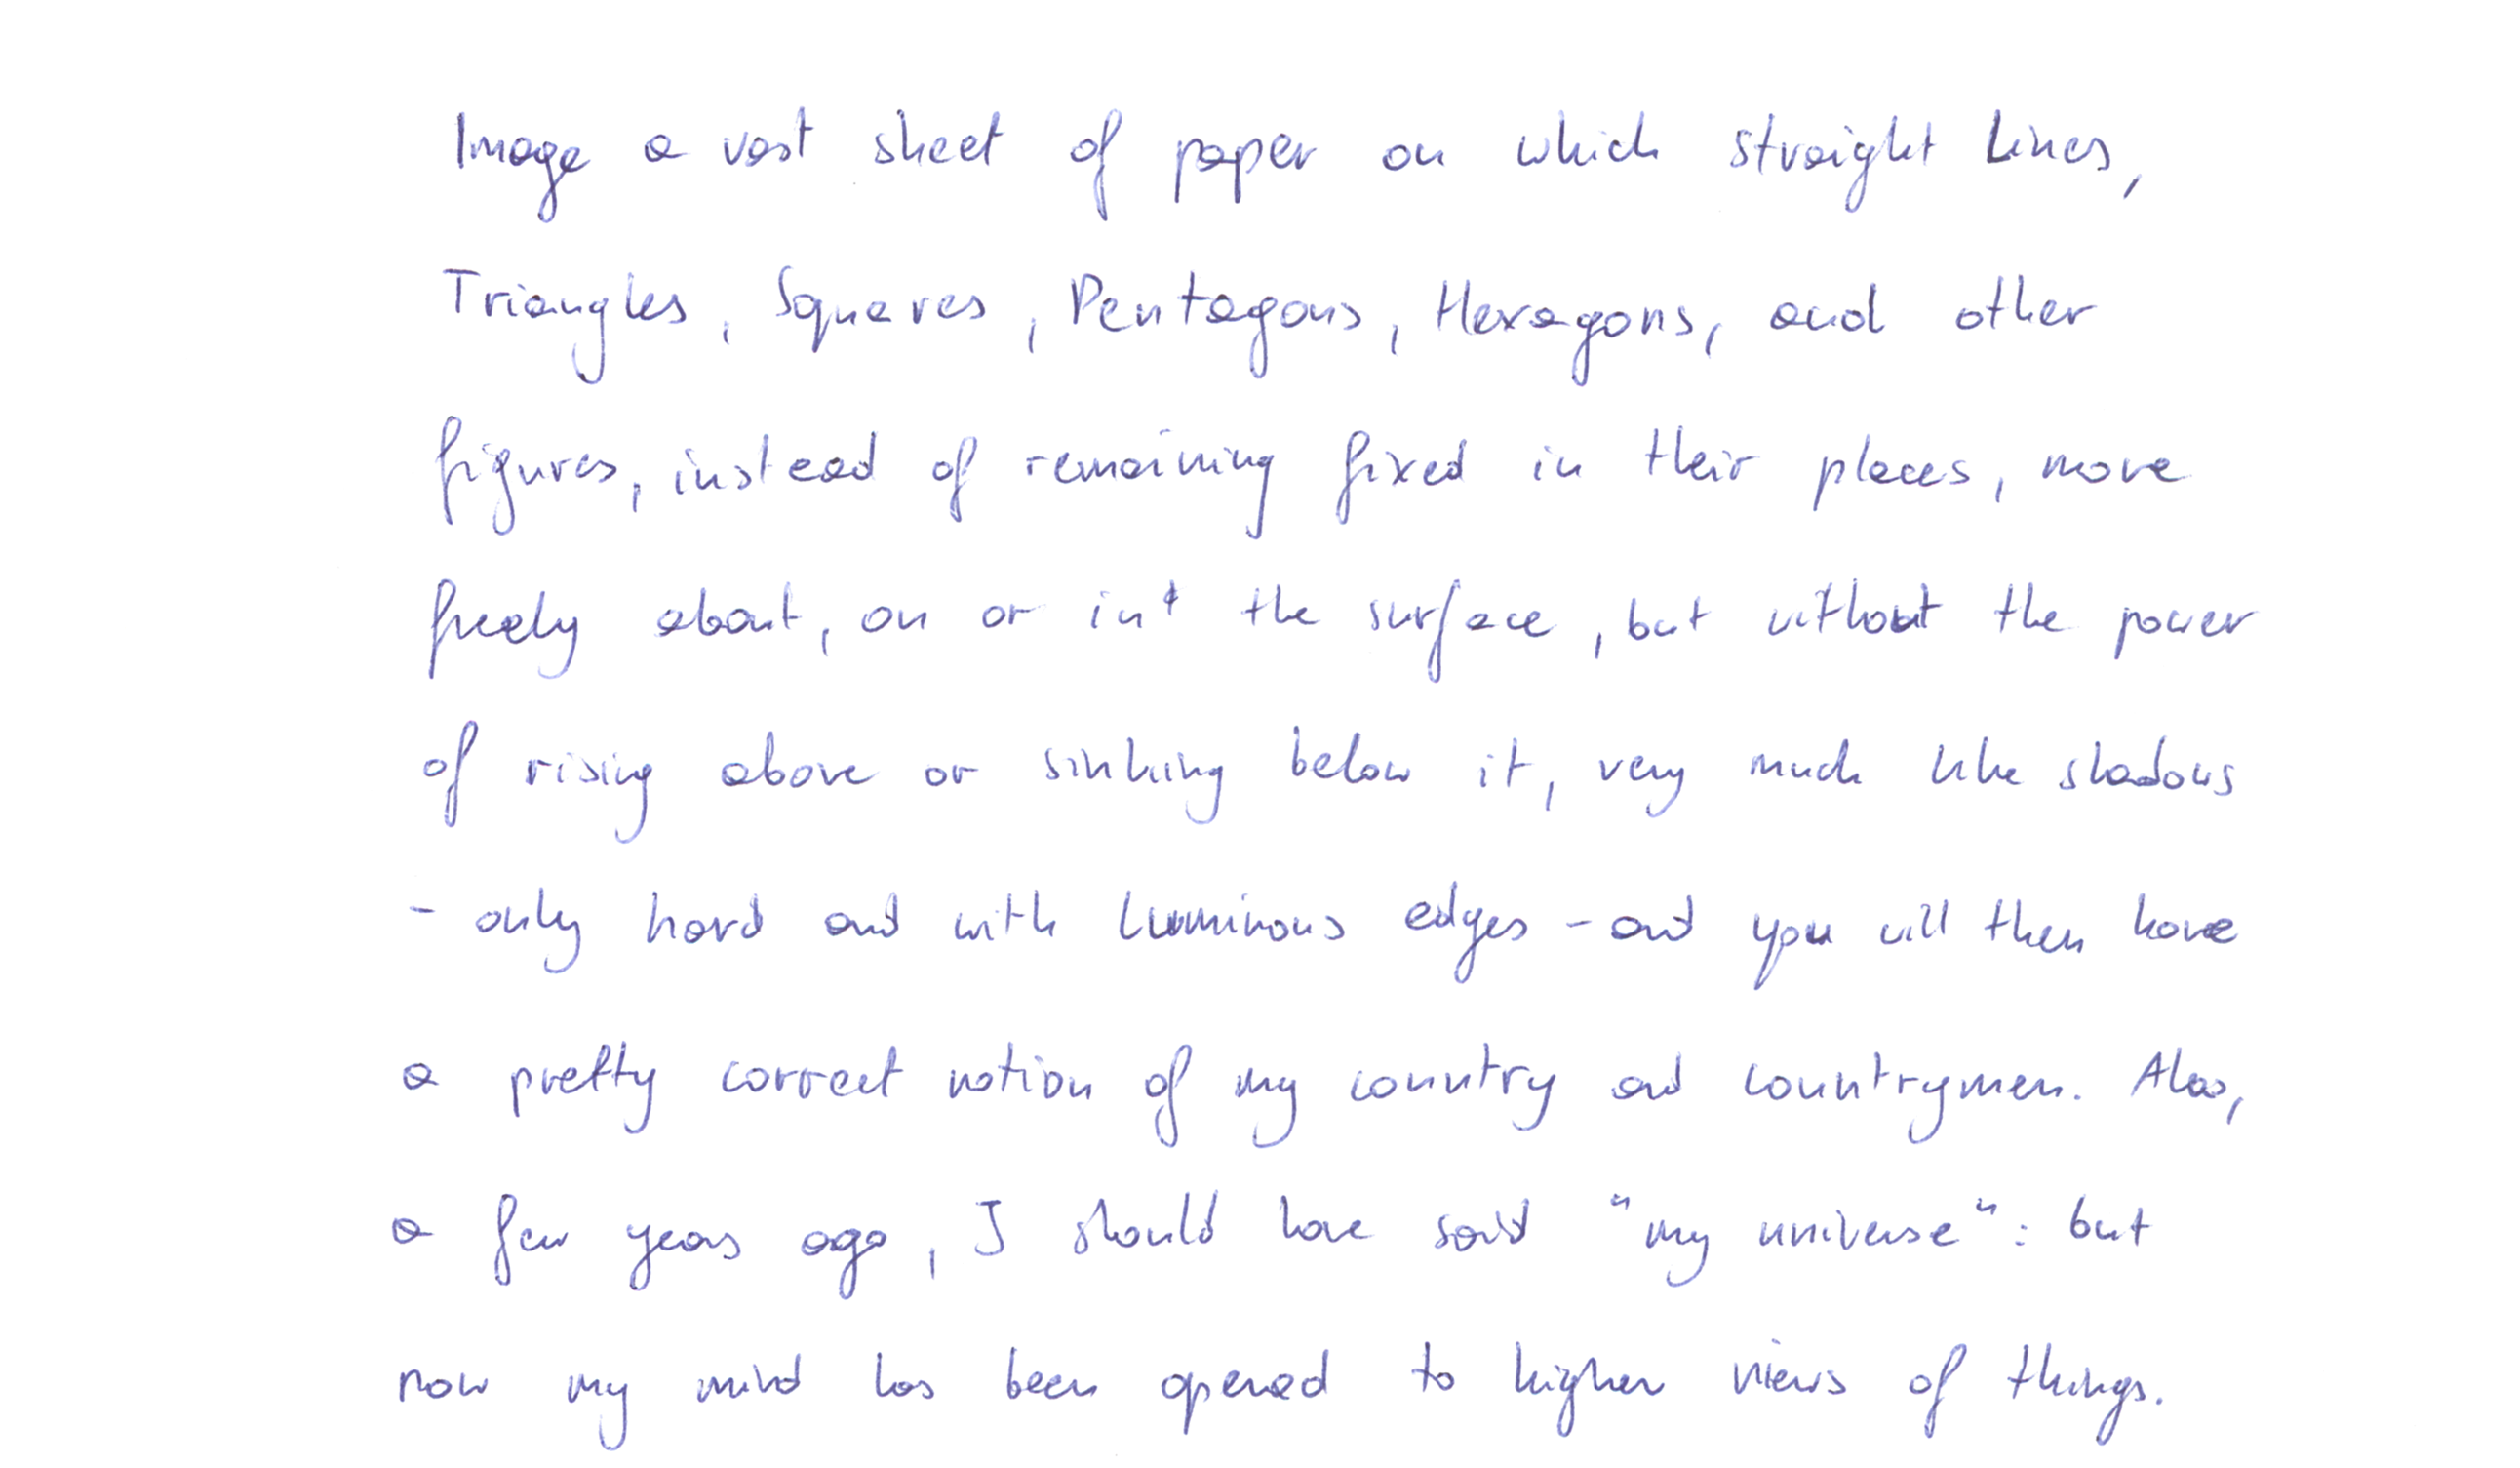 Image a vast sheet of paper on which straight Lines,
Triangles, Squares, Pentagons, Hexagons, and other
figures, instead of remaining fixed in their places, move
freely about, on or in the surface, but without the power
of rising above or sinking below it, very much like shadows
- only hard and with luminous edges - and you will then have
a pretty correct notion of my country and countrymen. Alas,
a few years ago, I should have said "my universe": but
now my mind has been opened to higher views of things.